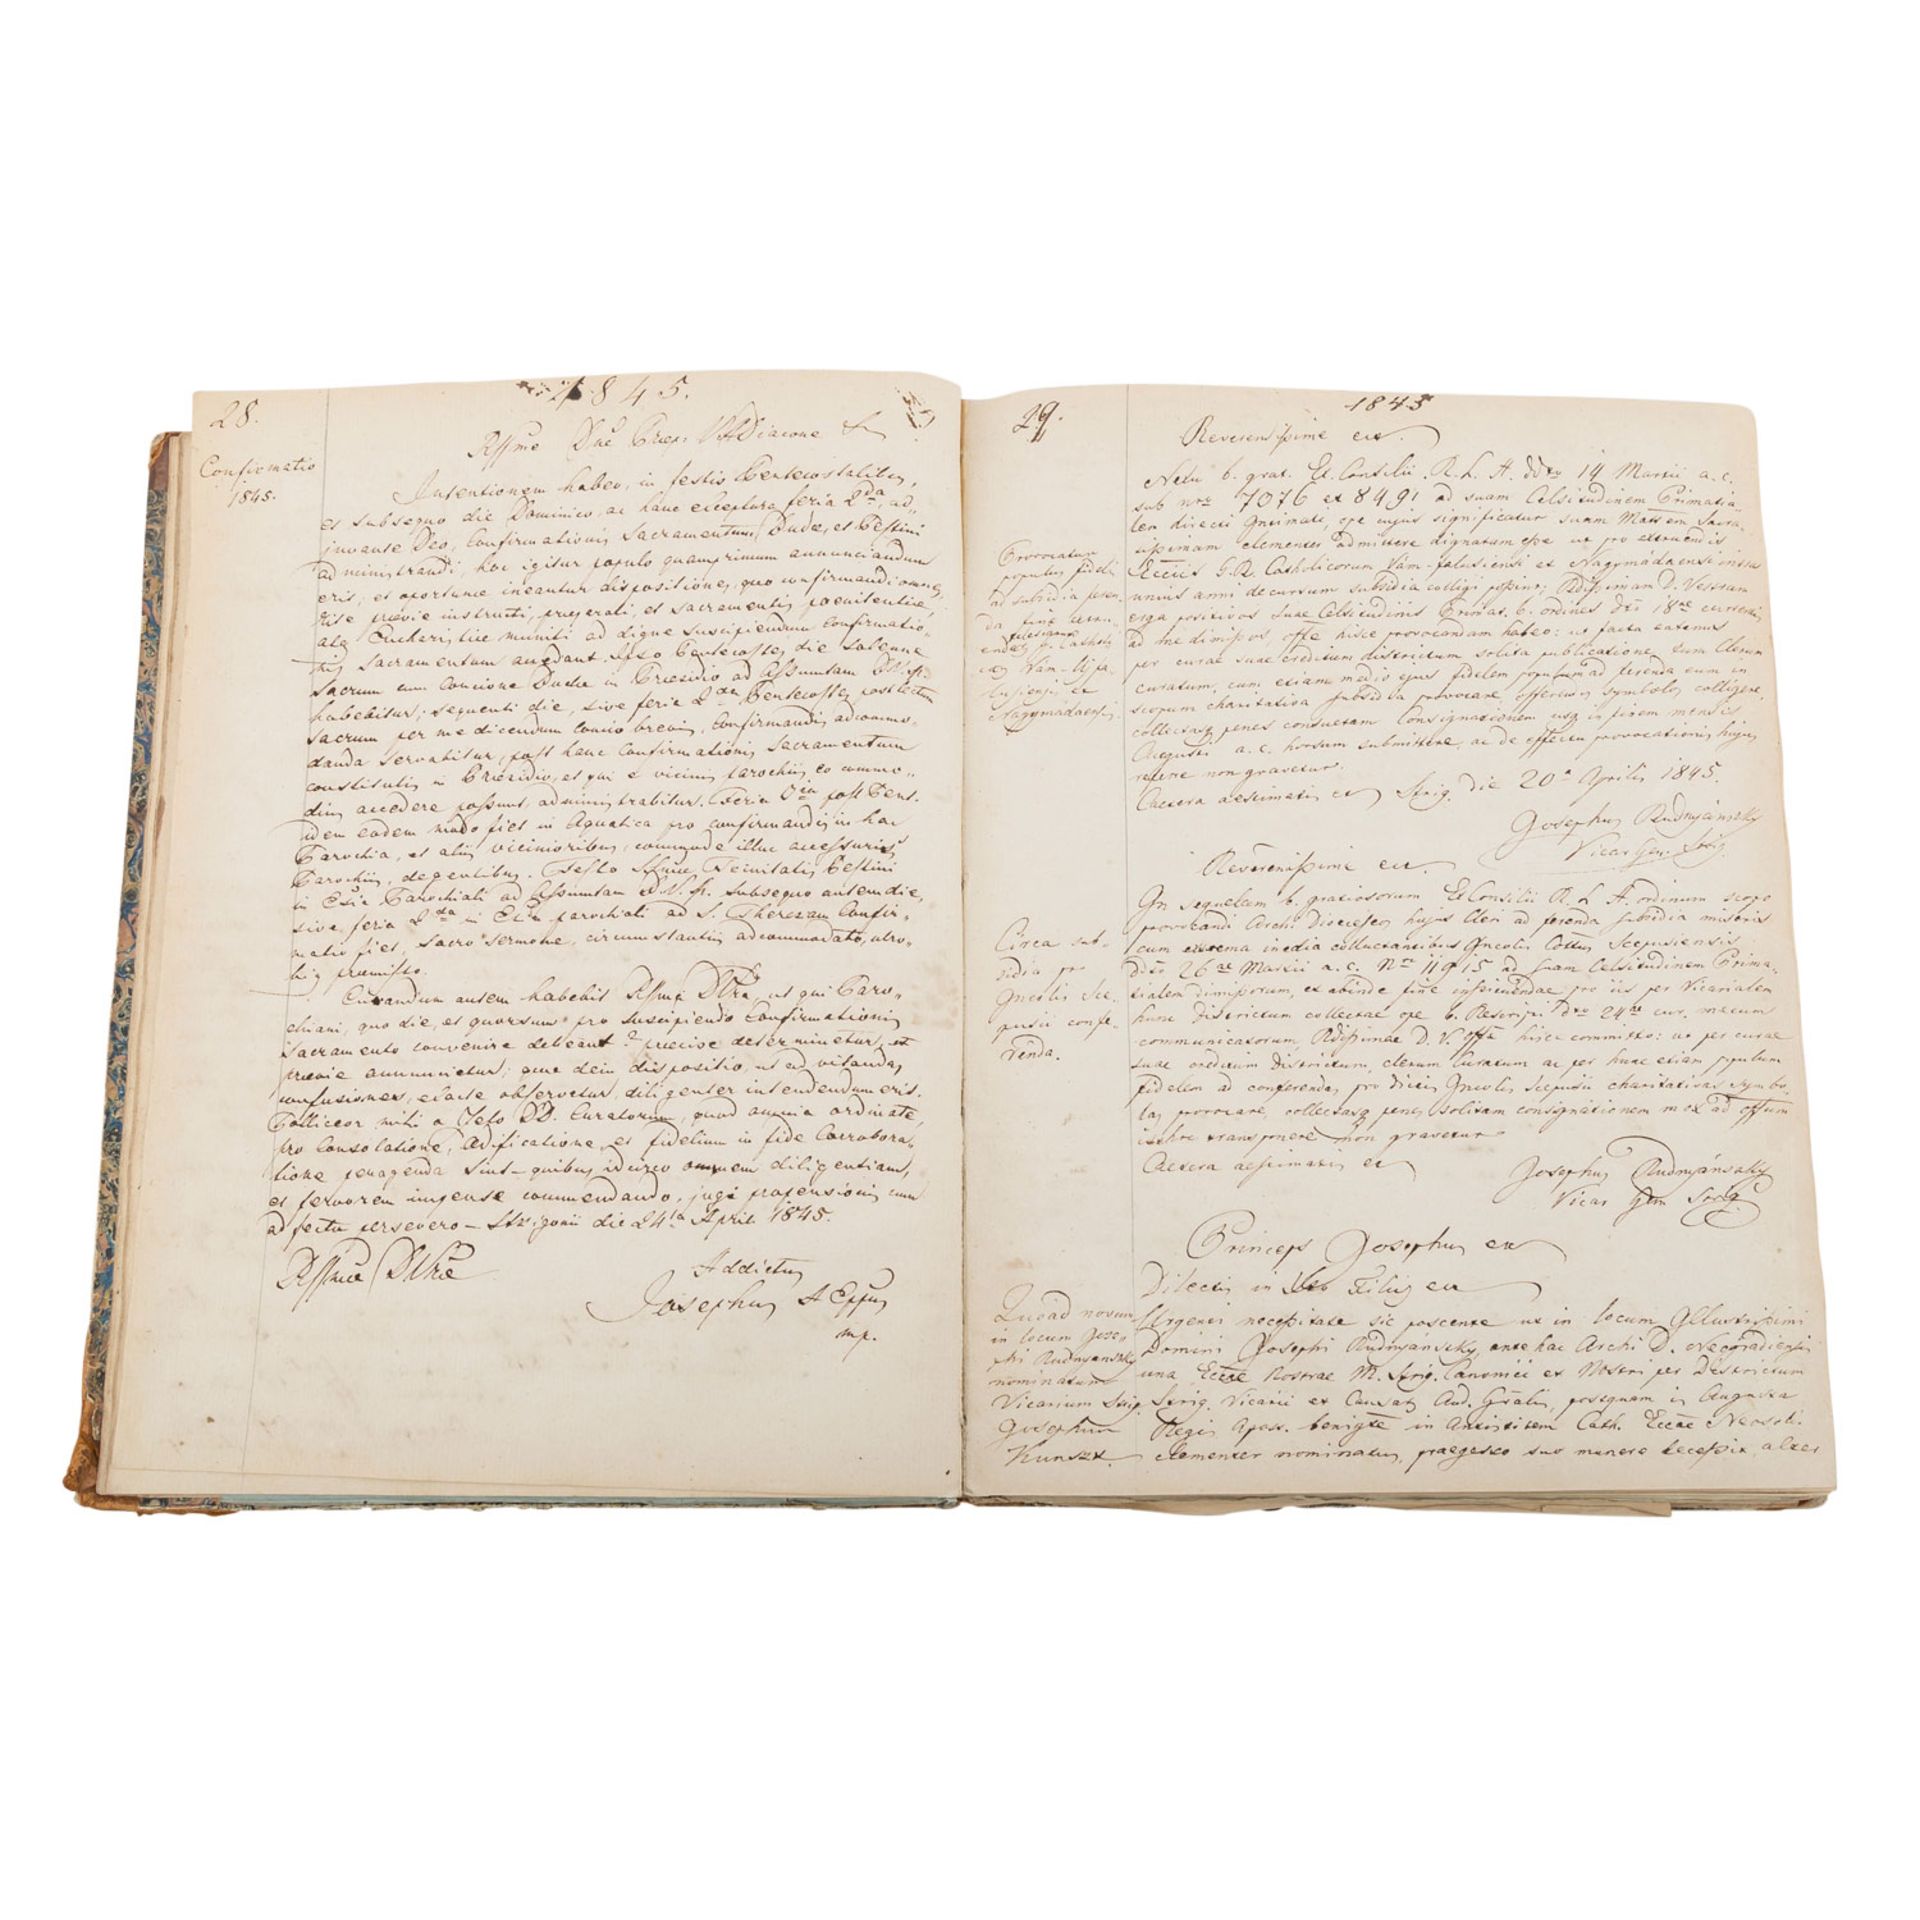 28.
1845.
Confirmatio
1845.
Rssme Dne Praep. VADiacone
Intentionem habeo, in festis Pentecostalibus,
et subsequo die Dominico, ac hanc exceptura feria 2da, ad-
juvante Deo, Confirmationis Sacramentum Budae, et Pestini
administrandi, hoc igitur populo quamprimum annunciandum
erit, et oportune ineantur dispositiones, quo confirmandi omnes
rite praevie instructi, praeparati, et sacramentis poenitentiae,
atq Eucharistiae muniti ad digne suscipiendum Confirmatio-
nis Sacramentum accedant. Ipso Pentecostes die solenne
Sacrum cum Concione Budae in Praesidio ad Assumtam B.V.
habebitur; sequenti die, sive feria 2da Pentecostes post lectum
Sacrum per me dicendum Concio brevis, Confirmandis adcommo-
danda servabitur, post hanc Confirmationis Sacramentum
constitutis in Praesidio, et qui e vicinis parochiis eo commo-
dius accedere possunt, administrabitur. Feria 3ia post Pent.
idem eodem modo fiet in Aquatica pro confirmandis in hac
Parochia, et aliis vicinioribus, commode illuc accessuris
Parochiis, degentibus. Festo SSmae Trinitatis Pestini
in Eccla Parochiali ad Assumtam B.V. subsequo autem die,
sive feria 2da in Eccla parochiali ad S. Theresam Confir-
matio fiet, Sacro sermone, circumstantiis adcommodato, utro-
biq praemisso.
Curandum autem habebit Rssma DVra, ut qui Paro-
chiani, quo die, et quorsum pro suscipiendo Confirmationis
Sacramento convenire debeant? praecise determinetur, et
praevie annuncietur; quae dein dispositio, ut ad vitandas
confusiones, exacte observetur, diligenter intendendum erit.
Polliceor mihi a Zelo DD. Curatorum, quod omnia ordinate,
pro Consolatione, Adificatione, et fidelium in fide Corrobora-
tione peragenda sint – quibus idcirco omnem diligentiam,
et fervorem impense commendando, jugi propensionis cum
adfectu persevero – Strigonii die 24ta April 1845.
Rssmae DVrae
Addictus
Josephus AEppus
mp.
29.
1845
Reverendissime
Nexu b. grat. Ex. Consilii R. L. H. ddto 14 Martii a. c.
sub nro 7076 et 8491 ad suam Celsitudinem Primatia-
lem directi Intimati, ope cujus significatur suam Mattem Sacra-
tissimam clementer admittere dignatam esse ut pro extruendis
Ecciis G. R. Catholicorum Vám-falusiensi et Nagymádaensi intra
unius anni decursum subsidia colligi possint; Rdissimam D. Vestram
erga positivos Suae Celsitudinis Primat. b. ordines dto 18ae currentis
ad me dimissos, offe hisce provocandam habeo: ut facta eatenus
per curae suae creditum districtum solita publicatione, tum Clerum
curatum, cum etiam medio ejus fidelem populum ad ferenda eum in
scopum charitativa subsidia provocare, offerendos symbolos colligere,
collectasq penes consuetam Consignationem usq in finem mensis
Augusti a. c. horsum submittere, ac de effectu provocationis hujus
referre non gravetur.
Caetera aestimatis Strig. die 20a Aprilis 1845.
Josephus Rudnyánszky
Vicar Gen. Strig.
Provocatur
populus fidelis
ad subsidia feren-
da fine
G. Catholi
Vám-
lusiensis et
Nagymádaensis
Reverendissime
In sequelam b. gratiosorum Ex Consilii R. L. H. ordinum scopo
provocandi Archi Dioceseos hujus Cleri ad ferenda subsidia miseris
cum extrema inedia colluctantibus Incolis Cottus Scepusiensis
ddto 26ae Martii a. c. Nro 11915 ad suam Celsitudinem Prima-
tialem dimissorum, et abinde fine instituendae pro iis per Vicarialem
hunc districtum collectae ope b. Rescripti dto 24ae cur. mecum
communicatorum, Rdissimae D. V. offe hisce committo: ut per curae
suae creditum districtum, clerum Curatum ac per hunc etiam populum
fidelem ad conferendas pro dictis Incolis Scepusii charitativas symbo-
las provocare, collectasq penes solitam consignationem mox ad offum
isthoc transponere non gravetur
Caetera aestimatis
Josephus Rudnyánszky
Vicar Gen Strig
Circa sub-
sidia pro
Incolis Sce-
pusii confe-
renda.
Princeps Josephus
Dilectis in Filiis
Urgenti necessitate sic poscente ut in locum Illustrissimi
Domini Josephi Rudnyánszky, ante hac Archi D. Neogradiensis
una Eccae Nostrae M. Strig. Canonici et Nostri per Districtum
Strig. Vicarii et Causar. Aud. Gralis, postquam is Augusta
Regis Apost. benigte in Antistitem Cath. Eccae Neosoli.
clementer nominatus, praegesto suo munere decessit, alter
Quoad novum
in locum Jose-
phi Rudnyanszky
nominatum
Vicarium Strig.
Josephum
Kunszt.